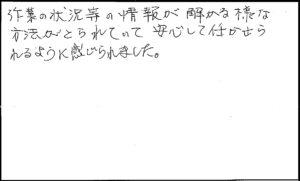 作業の状況等の情報が解かる様な
方法がとられていて安心して任かせら
れるように感じられました。